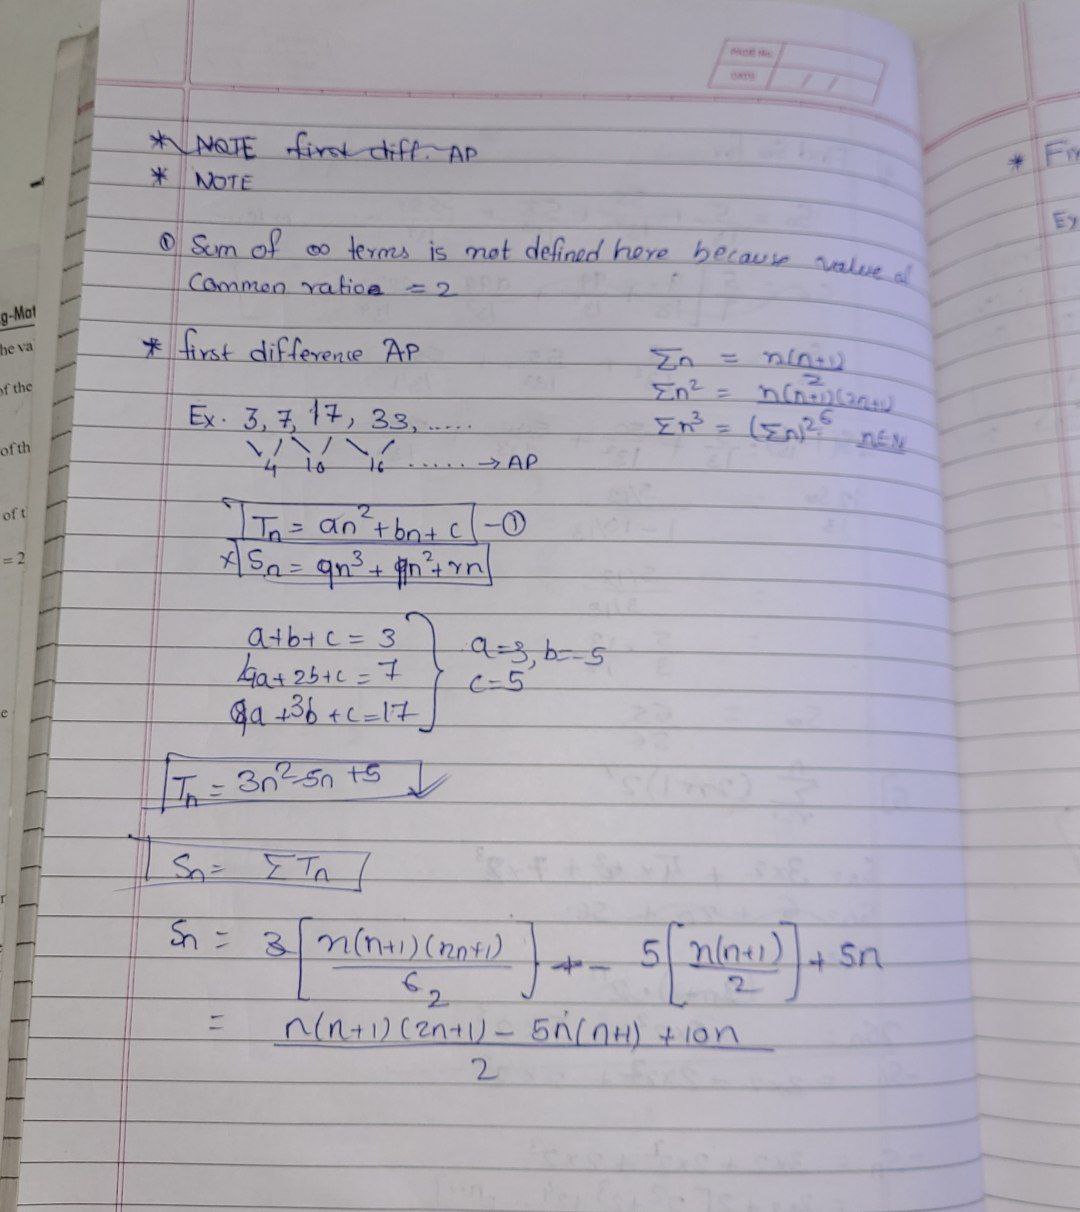 PAGE No.
DATE
* NOTE first diff. AP
* NOTE
① Sum of ∞ terms is not defined here because value of
Common ratio = 2
* first difference AP
Σn = n(n+1)/2
Σn² = n(n+1)(2n+1)/6
Σn³ = (Σn)² n∈N
Ex. 3, 7, 17, 33, .....
4 10 16 ...... → AP
Tn = an² + bn + c —①
* Sn = qn³ + qn² + rn
a+b+c = 3
4a+2b+c = 7
9a+3b+c=17
a=3, b=-5
c=5
Tn = 3n²-5n +5
Sn = ΣTn
Sn = 3[n(n+1)(2n+1)/6 2] + - 5[n(n+1)/2] + 5n
= n(n+1)(2n+1) - 5n(n+1) + 10n / 2
g-Mat
he va
of the
of th
of t
= 2
e
r
* Fir
Ex